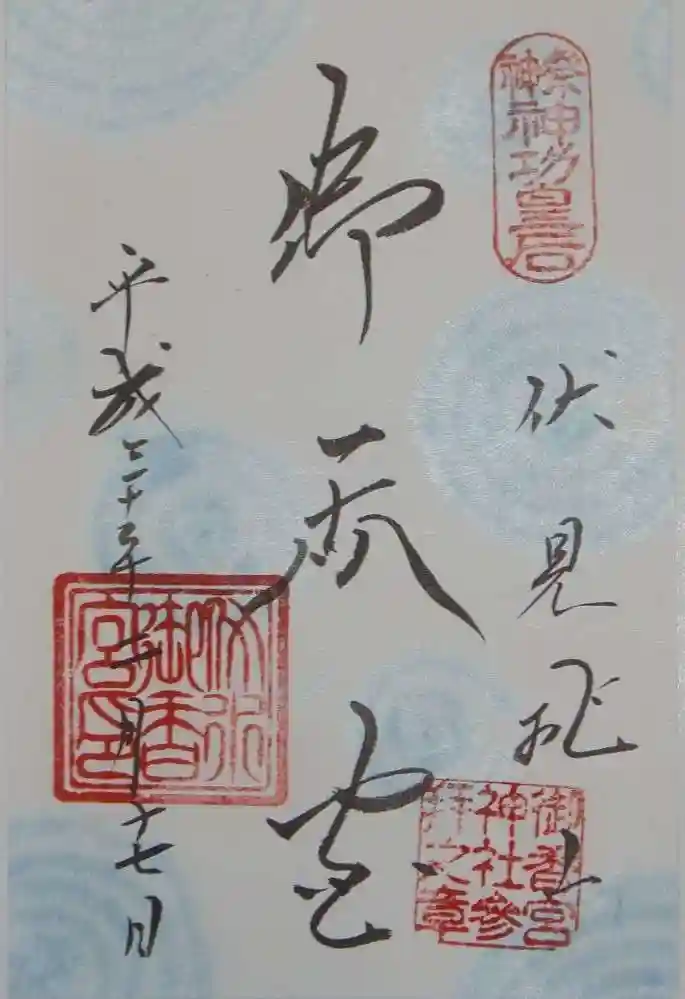 祭神
神功皇后
伏見桃山
御香宮
神社參
拝之章
御香宮
伏水
御香
宮印
平成
年
月十七日